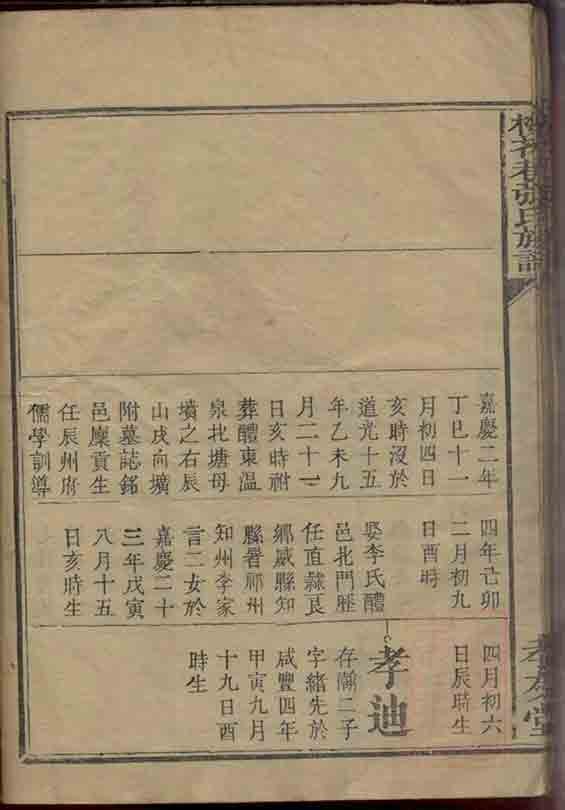 巷張氏族譜
孝友堂
嘉慶二年
丁巳十一
月初四日
亥時沒於
道光十五
年乙未九
月二十二
日亥時祔
葬醴東溫
泉北塘母
墳之右辰
山戌向壙
附墓誌銘
邑廩貢生
任辰州府
儒學訓導
四年己卯
二月初九
日酉時
娶李氏醴
邑北門歷
任直隸良
鄉威縣知
縣署祁州
知州李家
言二女於
嘉慶二十
三年戊寅
八月十五
日亥時生
四月初六
日辰時生
孝迪
存瀚二子
字緒先於
咸豐四年
甲寅九月
十九日酉
時生